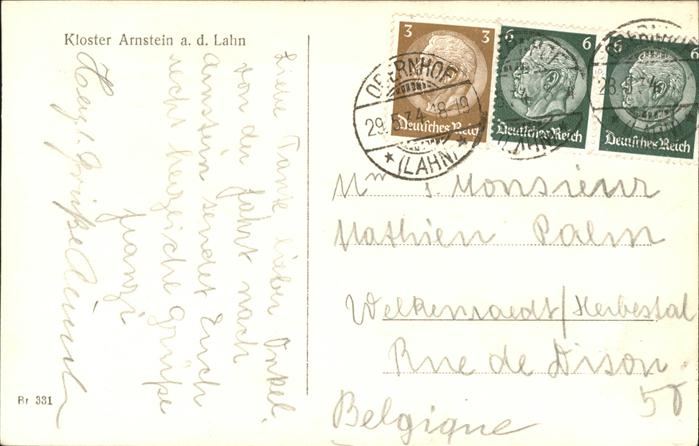 Kloster Arnstein a. d. Lahn
Liebe Tante lieber Onkel.
von der Fahrt nach
Arnstein sendet Euch
recht herzliche Grüße
Franzi
Herzl. Grüße
Br 331
3 3
Deutsches Reich
6 6
Deutsches Reich
6 6
Deutsches Reich
OBERNHOF
(LAHN)
Mme & Monsieur
Mathieu Palm
Welkenraedt/Herbestal
Rue de Dison.
50
Belgique